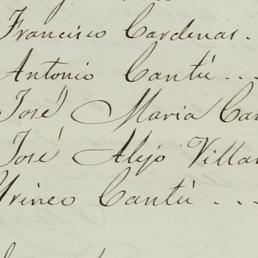 Francisco Cardenas.
Antonio Cantú ...
José Maria Can
José Alejo Villar
Yrineo Cantú ...